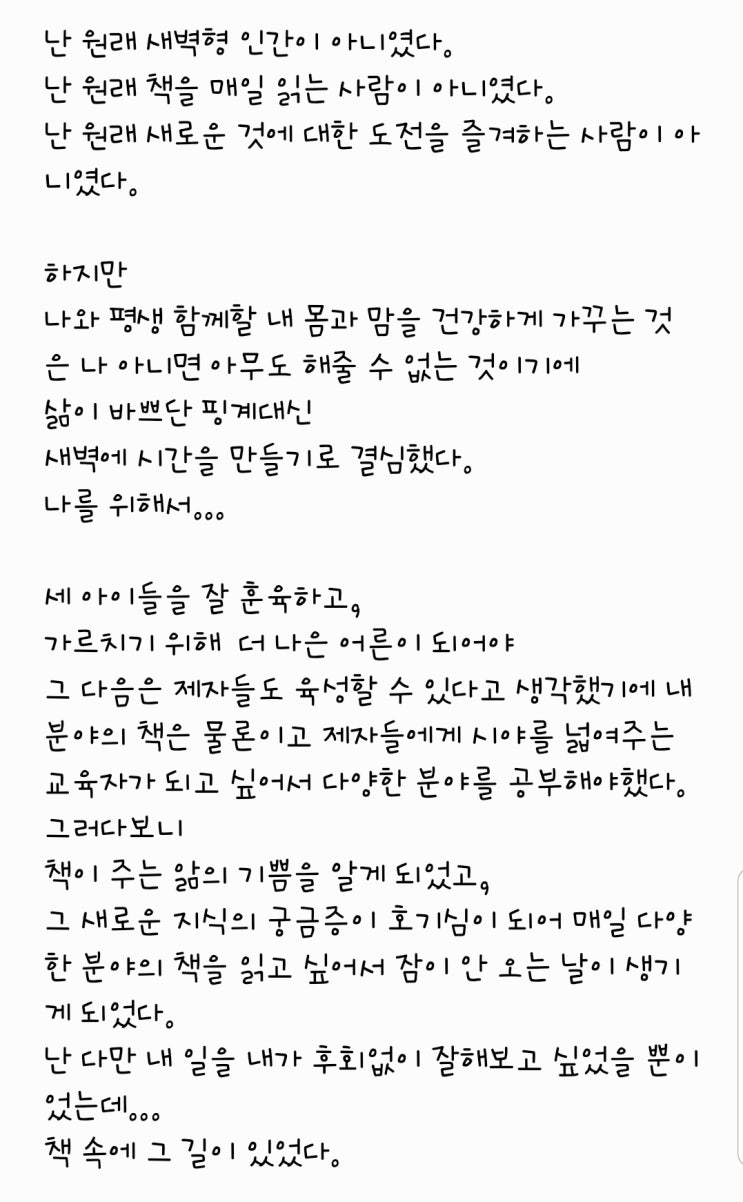 난 원래 새벽형 인간이 아니였다.
난 원래 책을 매일 읽는 사람이 아니였다.
난 원래 새로운 것에 대한 도전을 즐겨하는 사람이 아
니였다.
하지만
나와 평생 함께할 내 몸과 맘을 건강하게 가꾸는 것
은 나 아니면 아무도 해줄 수 없는 것이기에
삶이 바쁘단 핑계대신
새벽에 시간을 만들기로 결심했다.
나를 위해서...
세 아이들을 잘 훈육하고,
가르치기 위해 더 나은 어른이 되어야
그 다음은 제자들도 육성할 수 있다고 생각했기에 내
분야의 책은 물론이고 제자들에게 시야를 넓여주는
교육자가 되고 싶어서 다양한 분야를 공부해야했다.
그러다보니
책이 주는 앎의 기쁨을 알게 되었고,
그 새로운 지식의 궁금증이 호기심이 되어 매일 다양
한 분야의 책을 읽고 싶어서 잠이 안 오는 날이 생기
게 되었다.
난 다만 내 일을 내가 후회없이 잘해보고 싶었을 뿐이
었는데...
책 속에 그 길이 있었다.